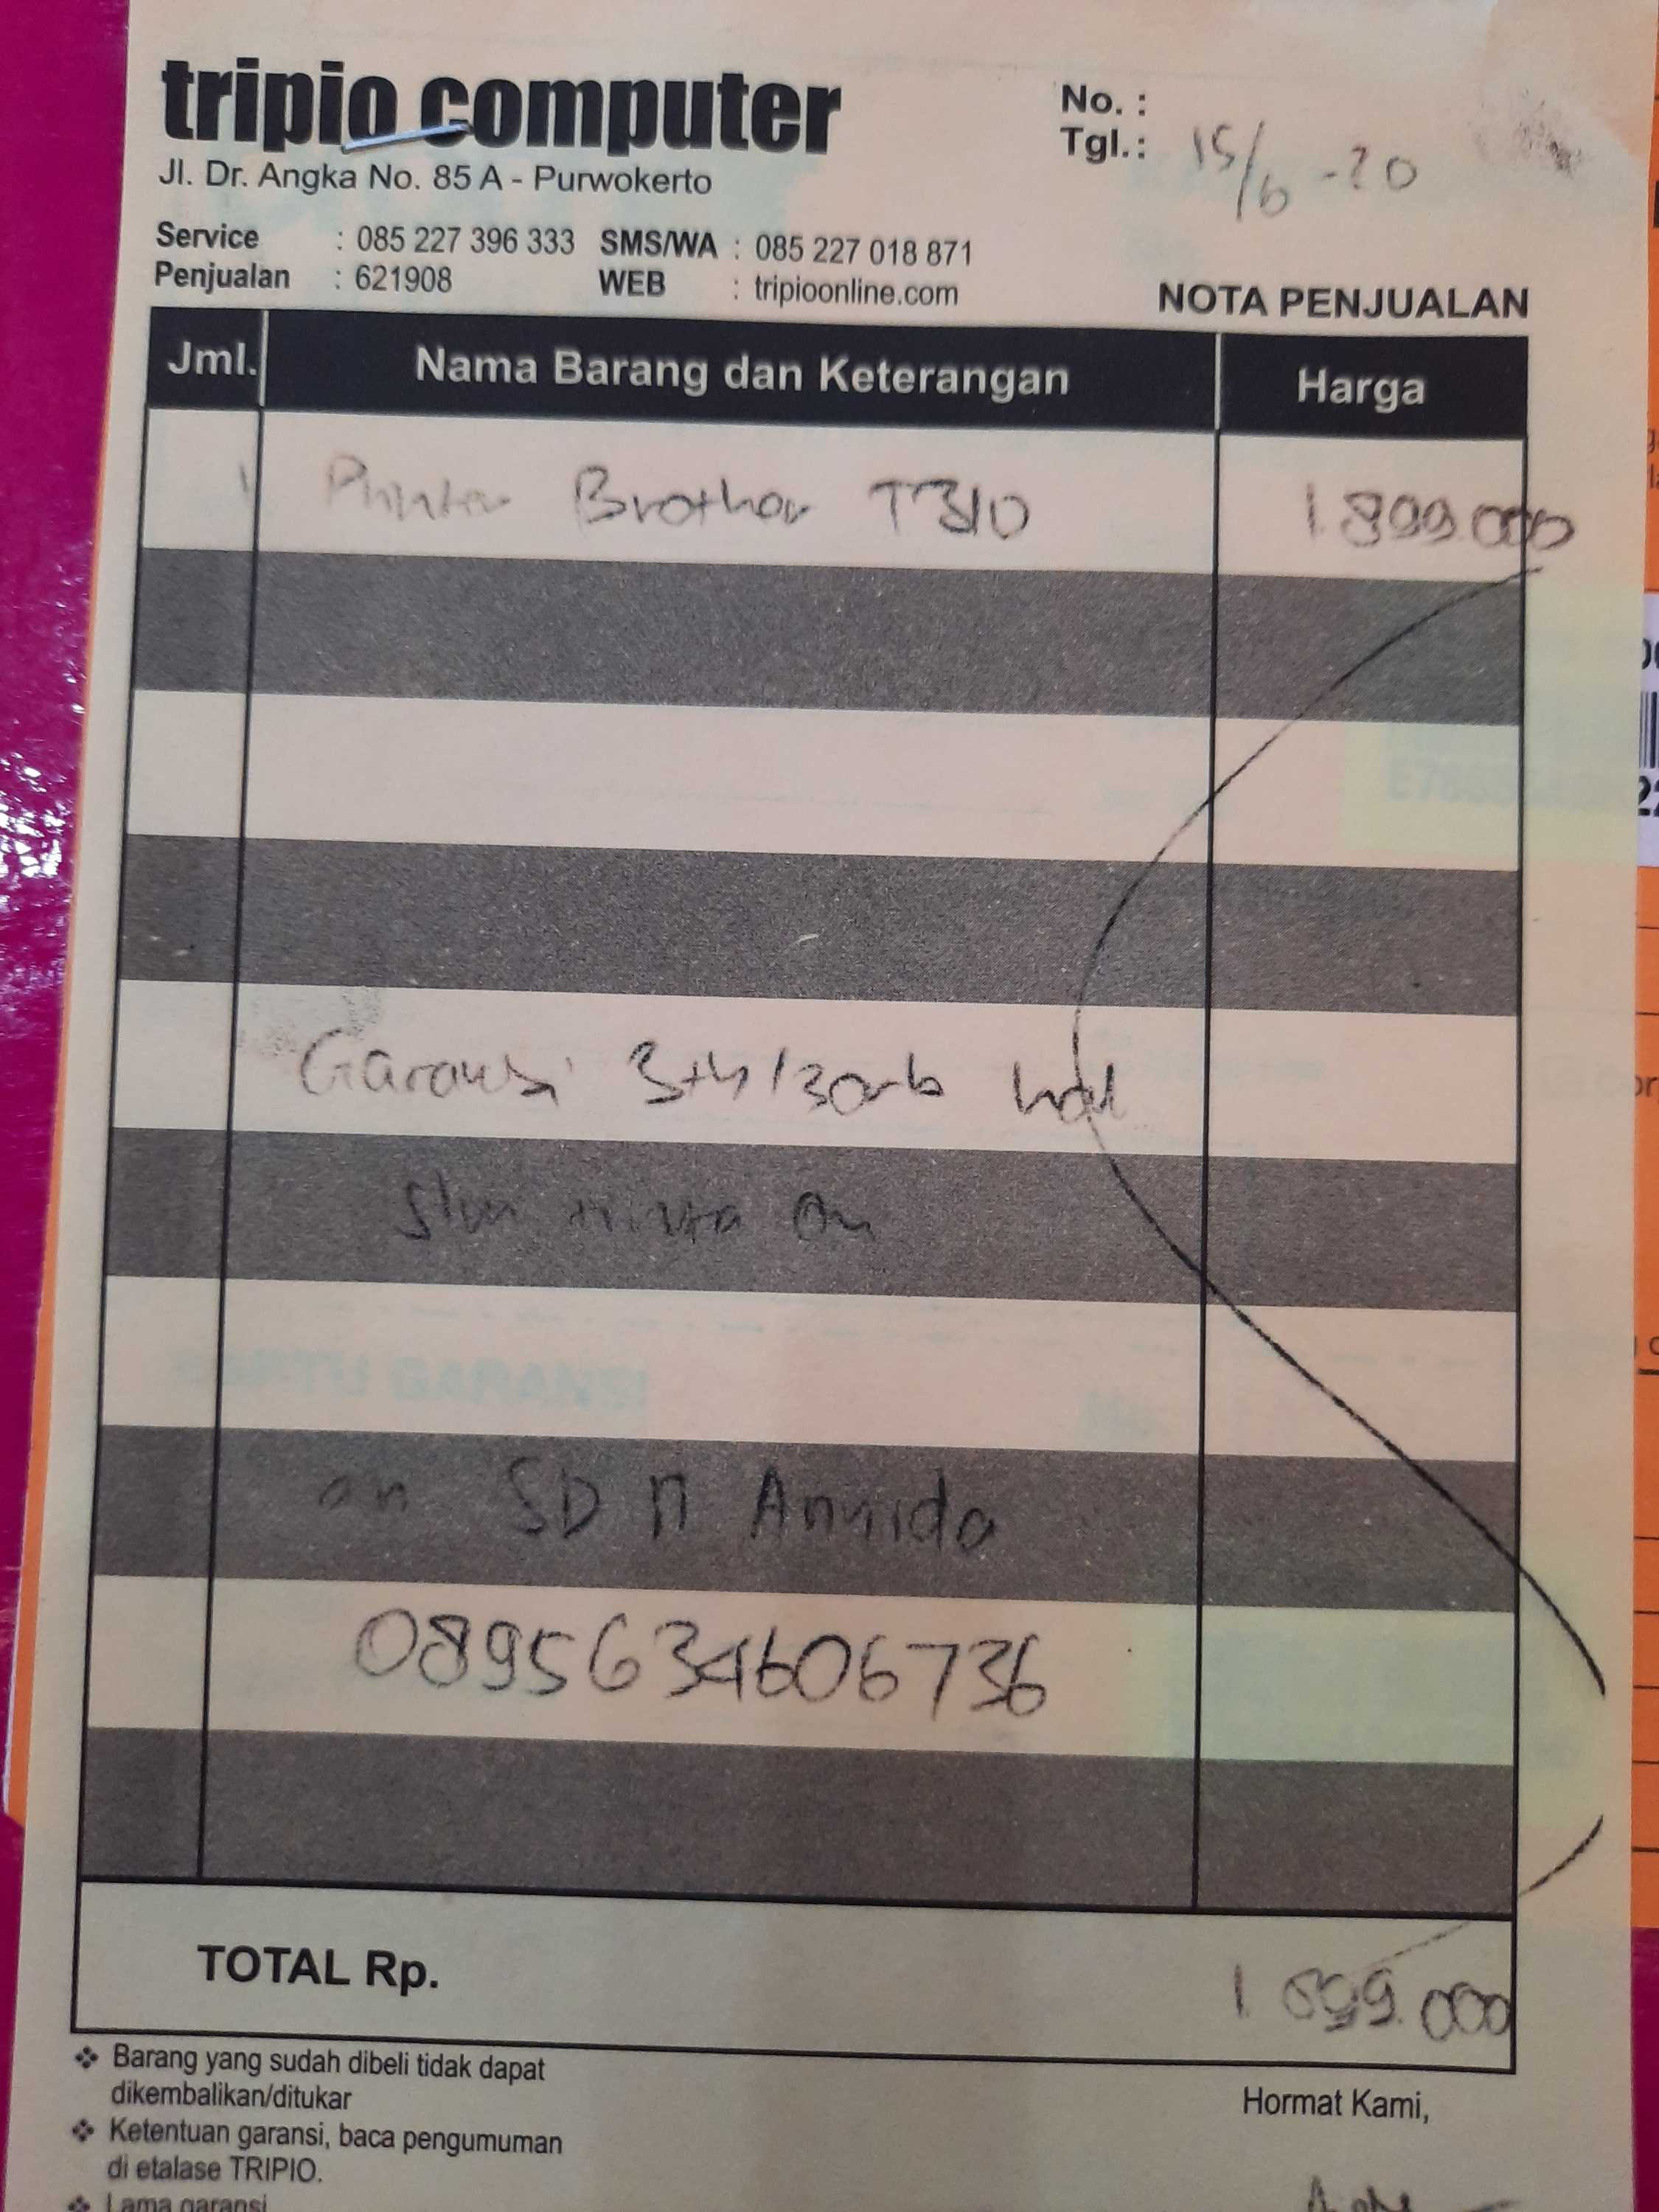 tripio computer
Jl. Dr. Angka No. 85 A - Purwokerto
No. :
Tgl.: 15/6 - 20
Service : 085 227 396 333 SMS/WA : 085 227 018 871
Penjualan : 621908 WEB : tripioonline.com
NOTA PENJUALAN
Jml. Nama Barang dan Keterangan Harga
1 Printer Brother T310 1.899.000
Garansi 3th/30rb
an SD N Annida
0895634606736
KARTU GARANSI
TOTAL Rp. 1.899.000
❖ Barang yang sudah dibeli tidak dapat
dikembalikan/ditukar
❖ Ketentuan garansi, baca pengumuman
di etalase TRIPIO.
❖ Lama garansi
Hormat Kami,